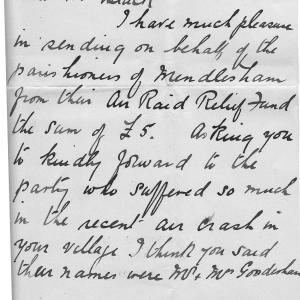 I have much pleasure
in sending on behalf of the
parishioners of Mendlesham
from their Air Raid Relief Fund
the sum of £5. Asking you
to kindly forward to the
party who suffered so much
in the recent air crash in
your village I think you said
their names were Mr & Mrs Gooderham